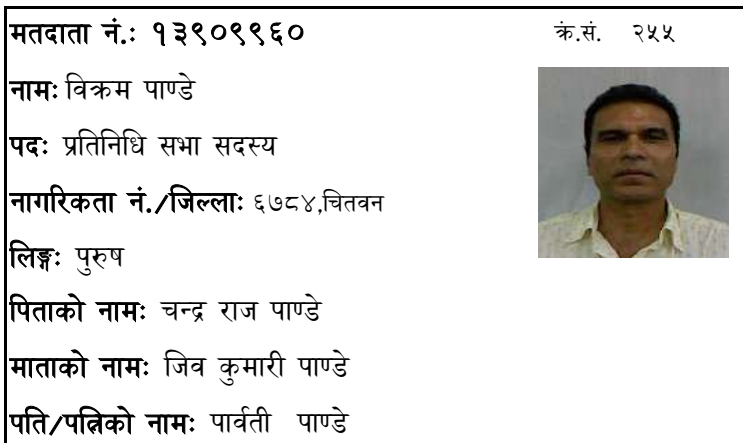 मतदाता नं.: १३९०९९६० क्रं.सं. २५५
नामः विक्रम पाण्डे
पदः प्रतिनिधि सभा सदस्य
नागरिकता नं./जिल्लाः ६७८४,चितवन
लिङ्गः पुरुष
पिताको नामः चन्द्र राज पाण्डे
माताको नामः जिव कुमारी पाण्डे
पति/पत्निको नामः पार्वती पाण्डे